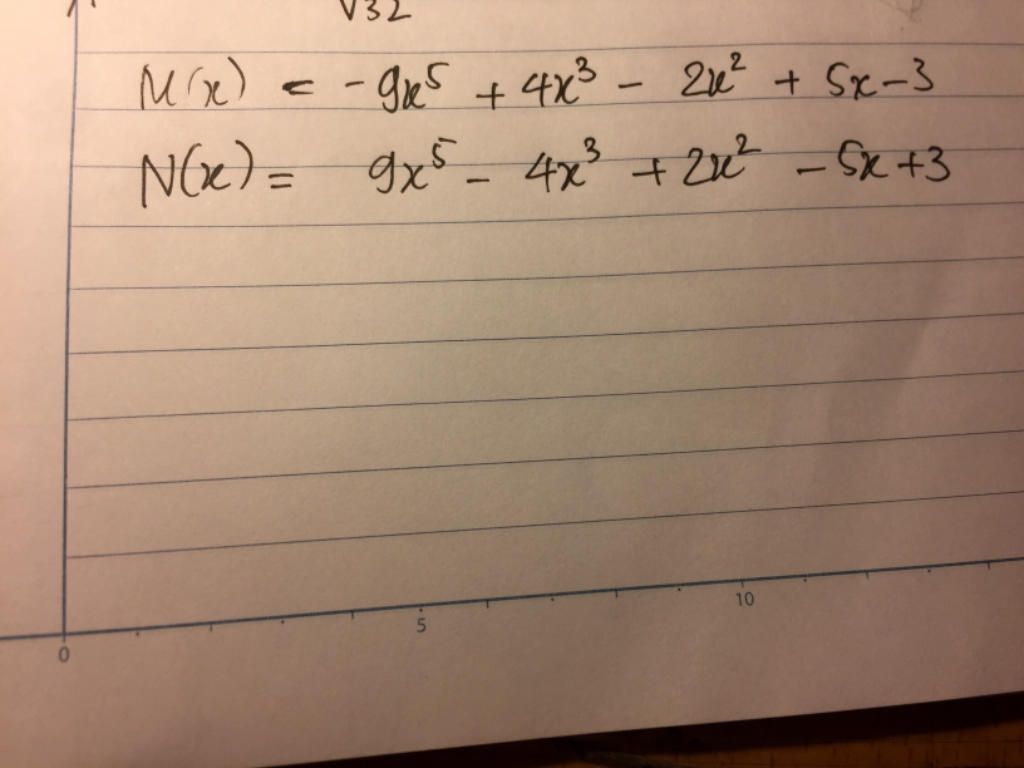 √32
M(x) = -9x⁵ + 4x³ - 2x² + 5x - 3
N(x) = 9x⁵ - 4x³ + 2x² - 5x + 3
0 5 10